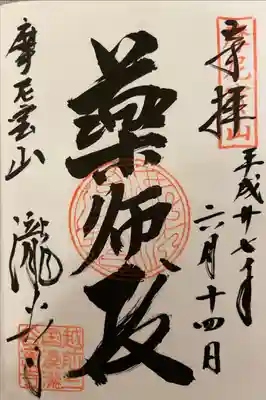 奉拝
平成廿七年
六月十四日
藥師殿
摩尼宝山
瀧谷寺